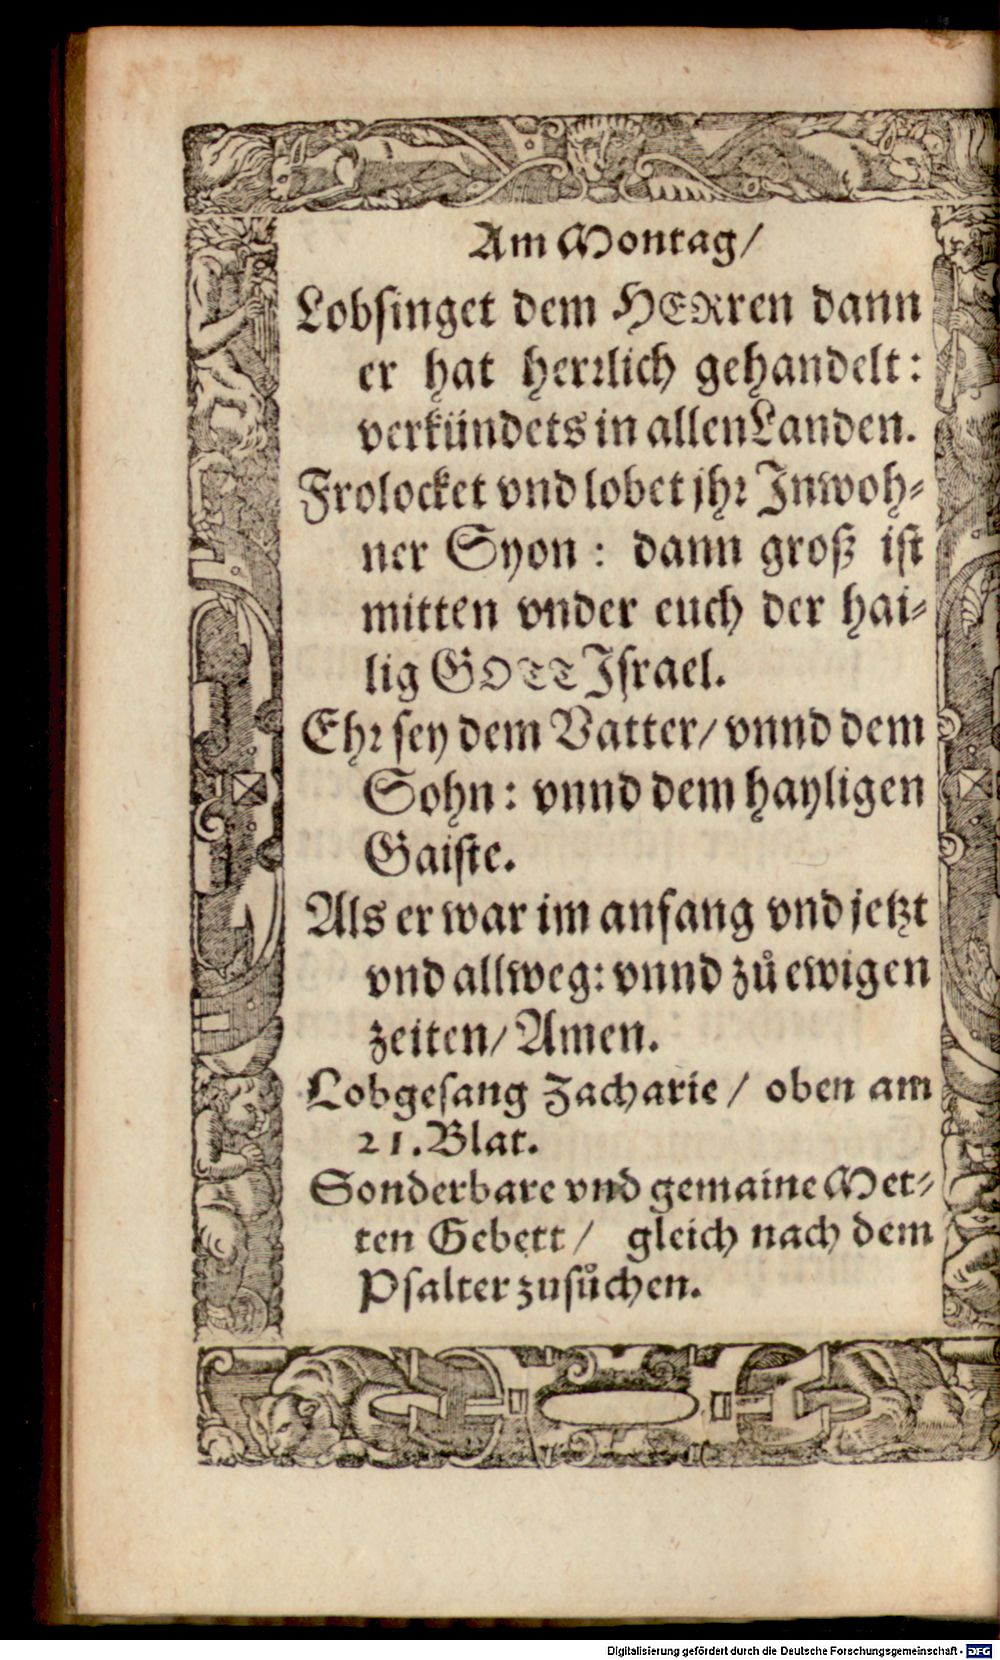 Am Montag/
Lobsinget dem HERren dann
er hat herrlich gehandelt:
verkündets in allen Landen.
Frolocket vnd lobet jhr Inwoh-
ner Syon: dann groß ist
mitten vnder euch der hai-
lig GOTT Israel.
Ehr sey dem Vatter/ vnnd dem
Sohn: vnnd dem hayligen
Gaiste.
Als er war im anfang vnd jetzt
vnd allweg: vnnd zů ewigen
zeiten/ Amen.
Lobgesang Zacharie/ oben am
21. Blat.
Sonderbare vnd gemaine Met-
ten Gebett/ gleich nach dem
Psalter zusůchen.
Digitalisierung gefördert durch die Deutsche Forschungsgemeinschaft - DFG